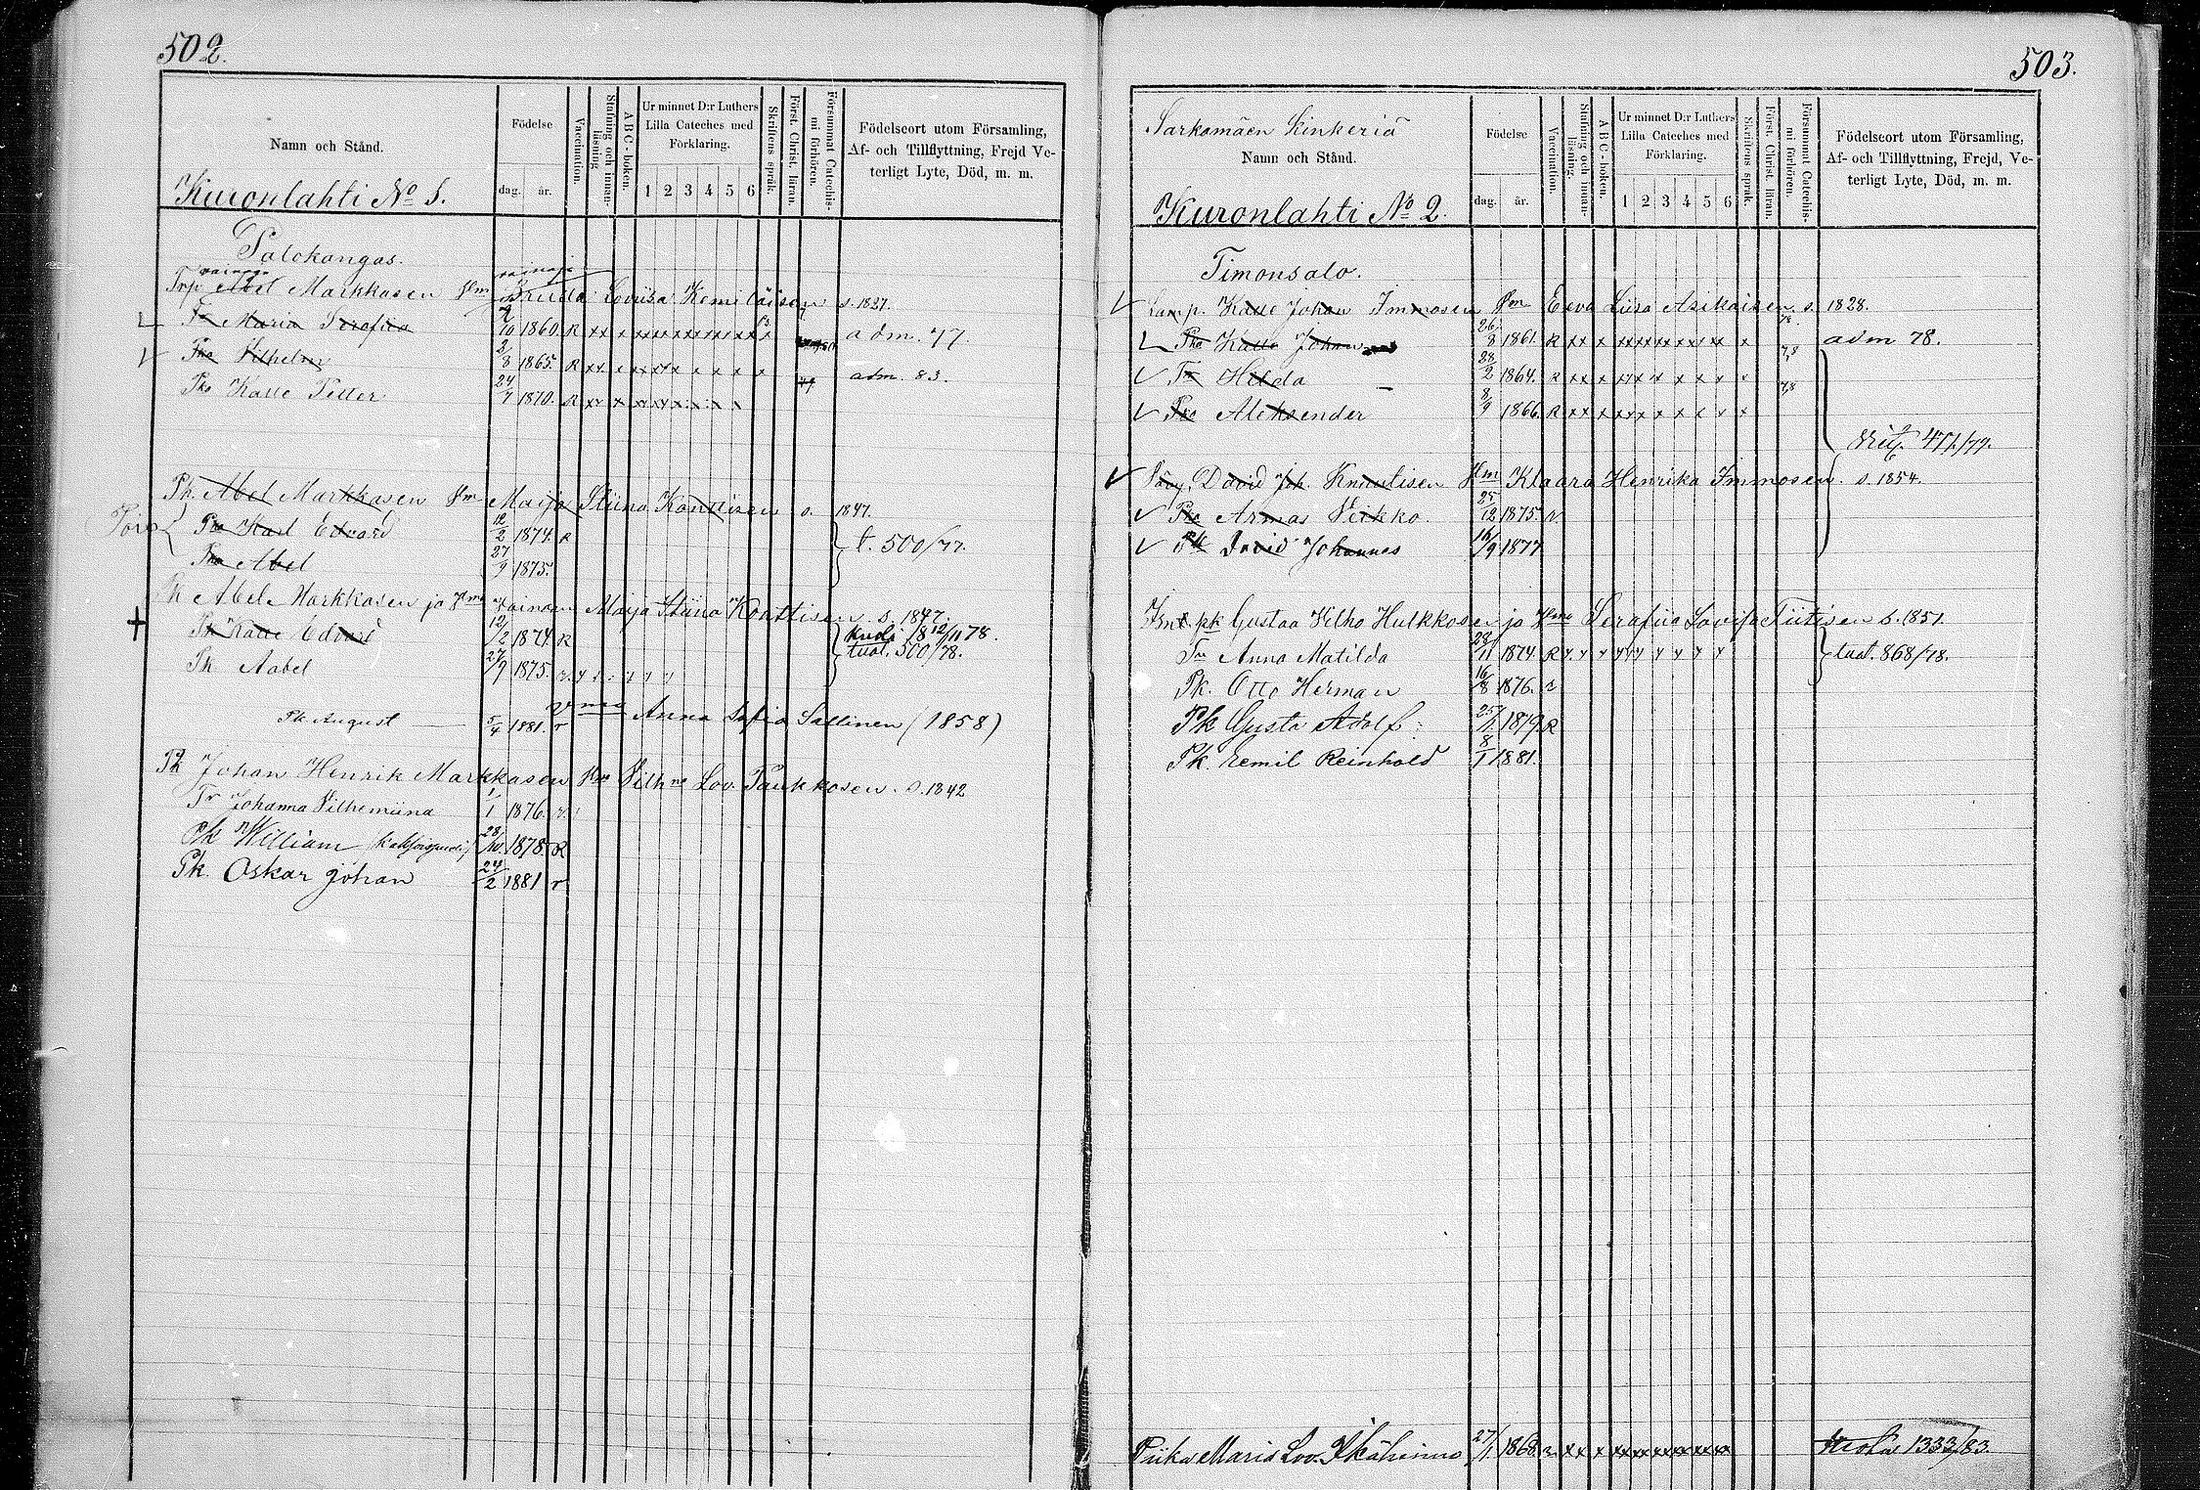 502.
Namn och Stånd.
Födelse
dag. år.
Vaccination.
Stafning och innanläsning.
ABC-boken.
Ur minnet D:r Luthers Lilla Cateches med Förklaring.
1 2 3 4 5 6
Skriftens språk.
Först. Christ. läran.
Försummat Catechismi förhören.
Födelseort utom Församling, Af- och Tillflyttning, Frejd Veterligt Lyte, Död, m. m.
Kuronlahti No 5.
Palokangas.
Abel Markkasen Hm Loviisa Kemiläisen s. 1827.
Tr Maria Serafiia 10 1860. R x x x adm. 77.
Pko Vilhelm 2/8 1865. R x x x adm. 83.
Pko Kalle Petter 24/7 1870. R x x x
Pk. Abel Markkasen Hm Maija Stiina Konttisen s. 1847.
Pko Karl Edvard 12/2 1874. R
t. 500/77.
Pko Abel 27/9 1875.
Pk Abel Markkasen ja Hma Maija Stiina Konttisen s. 1847
Pk Kalle Edvard 12/2 1874. R
Pk Aabel 27/9 1875. tual. 500/78.
Pk August 5/4 1881. r Anna Sofia Sallinen (1858)
Pk Johan Henrik Markkasen Vilh. Lov. Paukkosen s. 1842
Tr Johanna Vilhemiina 1/1 1876. r
Pk William 28/10 1878. R
Pk Oskar Johan 24/2 1881 r
503.
Sarkamäen Kinkeriä
Namn och Stånd.
Födelse
dag. år.
Vaccination.
Stafning och innanläsning.
ABC-boken.
Ur minnet D:r Luthers Lilla Cateches med Förklaring.
1 2 3 4 5 6
Skriftens språk.
Först. Christ. läran.
Försummat Catechismi förhören.
Födelseort utom Församling, Af- och Tillflyttning, Frejd, Veterligt Lyte, Död, m. m.
Kuronlahti No 2.
Timonsalo.
Lamp. Kalle Johan Immosen Hm Eeva Liisa Asikaisen s. 1828.
Pko Kalle Johan 26/8 1861. R x x x adm 78.
Tr Hilda 28/2 1864. R x x x
Pko Aleksender 8/9 1866. R x x x
471/77.
David Joh. Knuutisen Hm Klaara Henrika Immosen s. 1854.
Pko Armas Veikko. 25/12 1875. r.
Pk David Johannes 16/9 1877
pk Gustaa Vilho Hulkkosen ja Hma Serafiia Lovisa Tiitisen s. 1851.
Tr Anna Matilda 28/11 1874. R
tual. 868/78.
Pk. Otto Herman 16/8 1876. r
Pk Gusta Adolf 1879. R
Pk Eemil Reinhold 8/1 1881.
Piika Maria Lov. 27/1 1868. r x x x 1333/83.